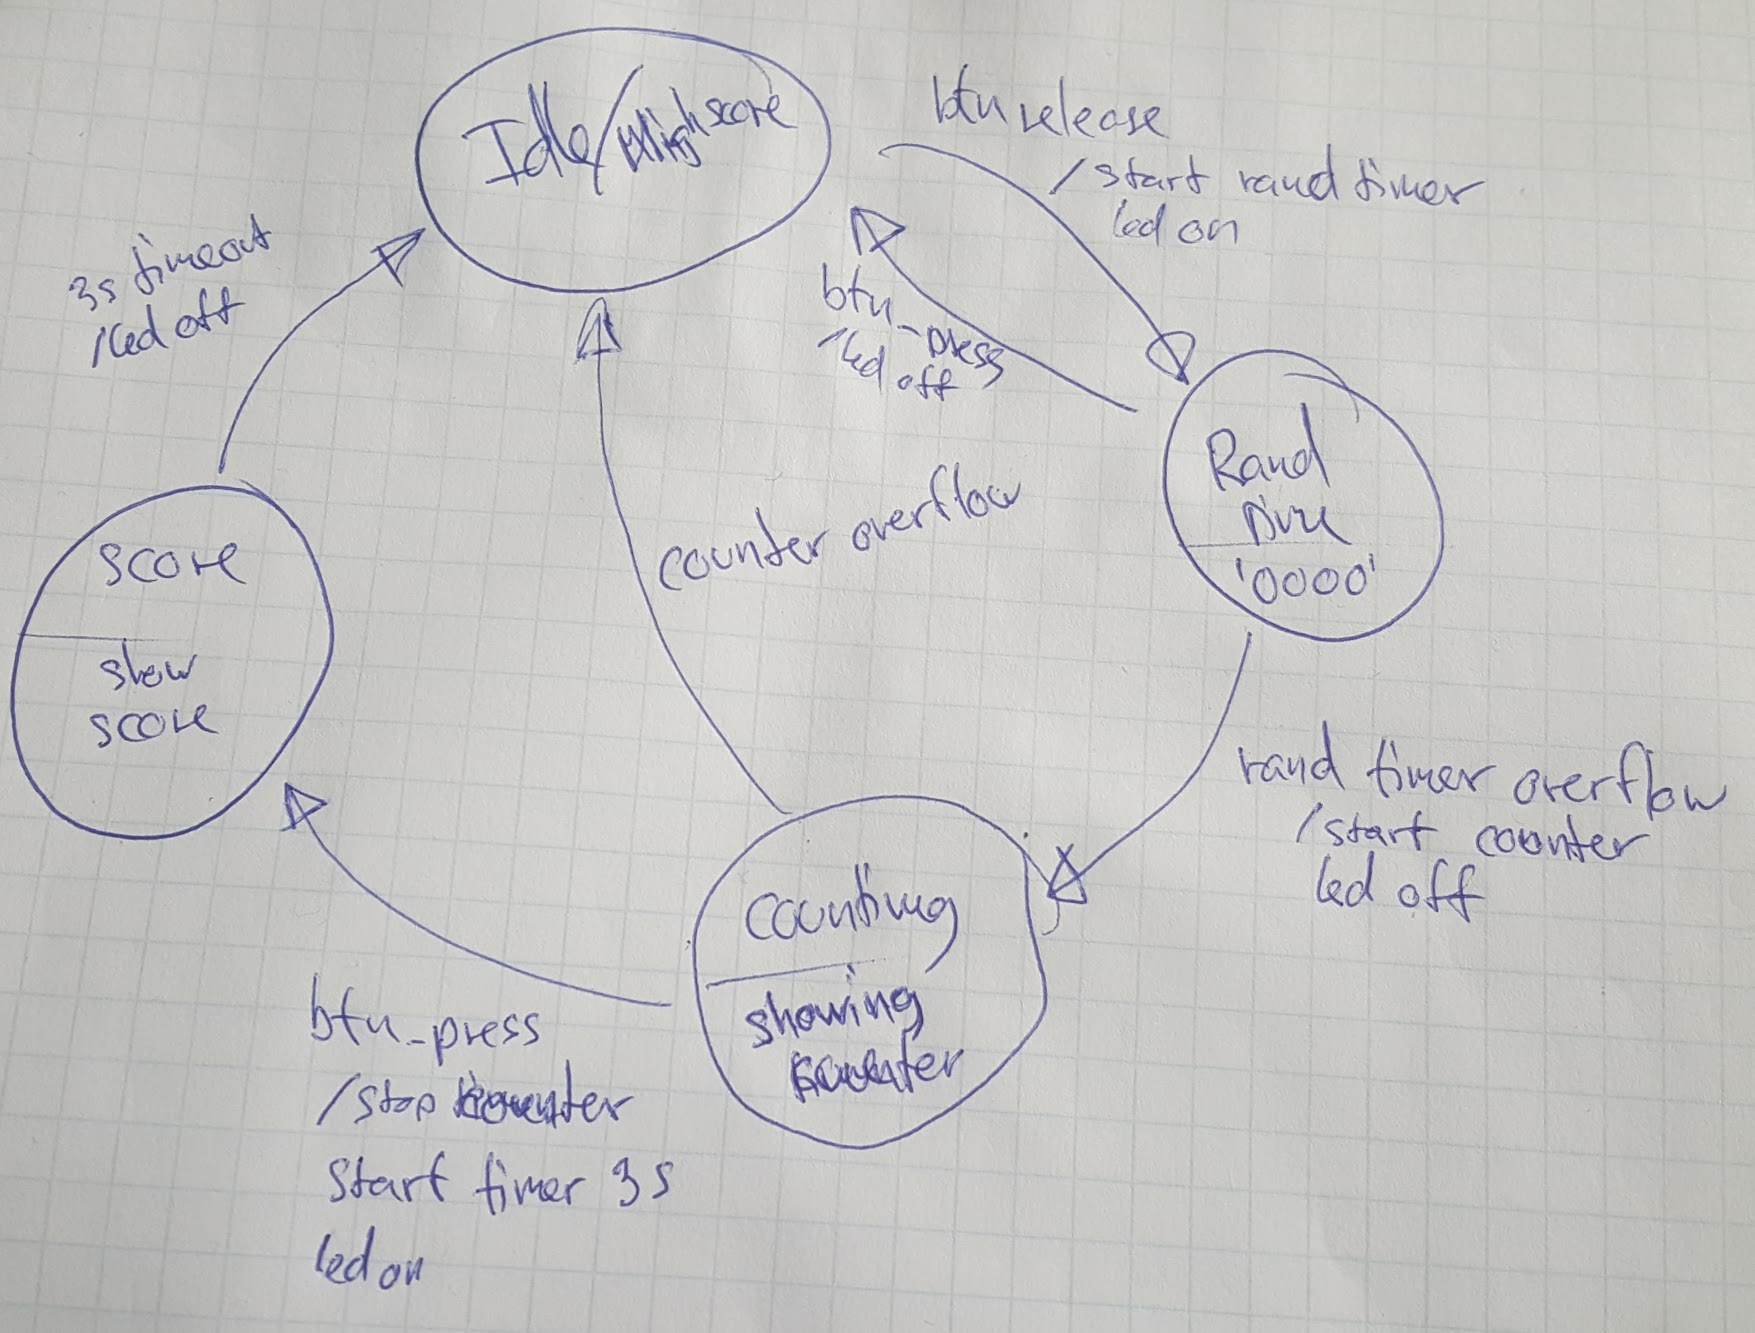 Idle/Highscore
btn release
/start rand timer
led on
3s timeout
/led off
btn_press
/led off
Rand
time
'0000'
counter overflow
score
show
score
rand timer overflow
/start counter
led off
counting
showing
counter
btn_press
/stop counter
start timer 3s
led on